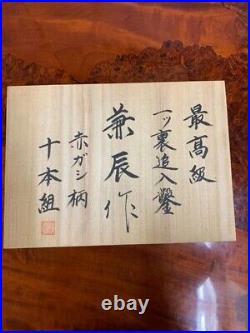 最高級
一ッ裏追入鑿
兼辰作
赤ガシ柄
十本組